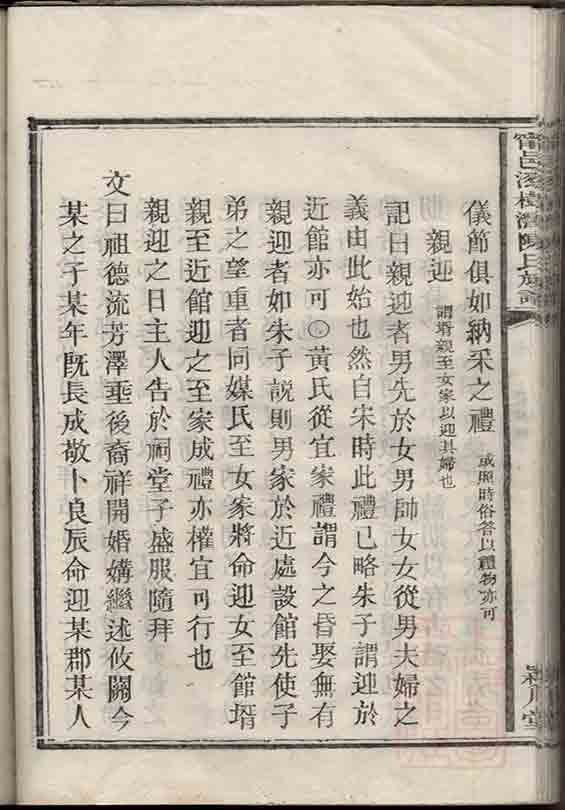 儀節俱如納采之禮 或照時俗答以禮物亦可
親迎 謂壻親至女家以迎其婦也
記曰親迎者男先於女男帥女女從男夫婦之
義由此始也然自宋時此禮已略朱子謂迎於
近館亦可○黃氏從宜家禮謂今之昏娶無有
親迎者如朱子說則男家於近處設館先使子
弟之望重者同媒氏至女家將命迎女至館壻
親至近館迎之至家成禮亦權宜可行也
親迎之日主人告於祠堂子盛服隨拜
文曰祖德流芳澤垂後裔祥開婚媾繼述攸關今
某之子某年既長成敬卜良辰命迎某郡某人